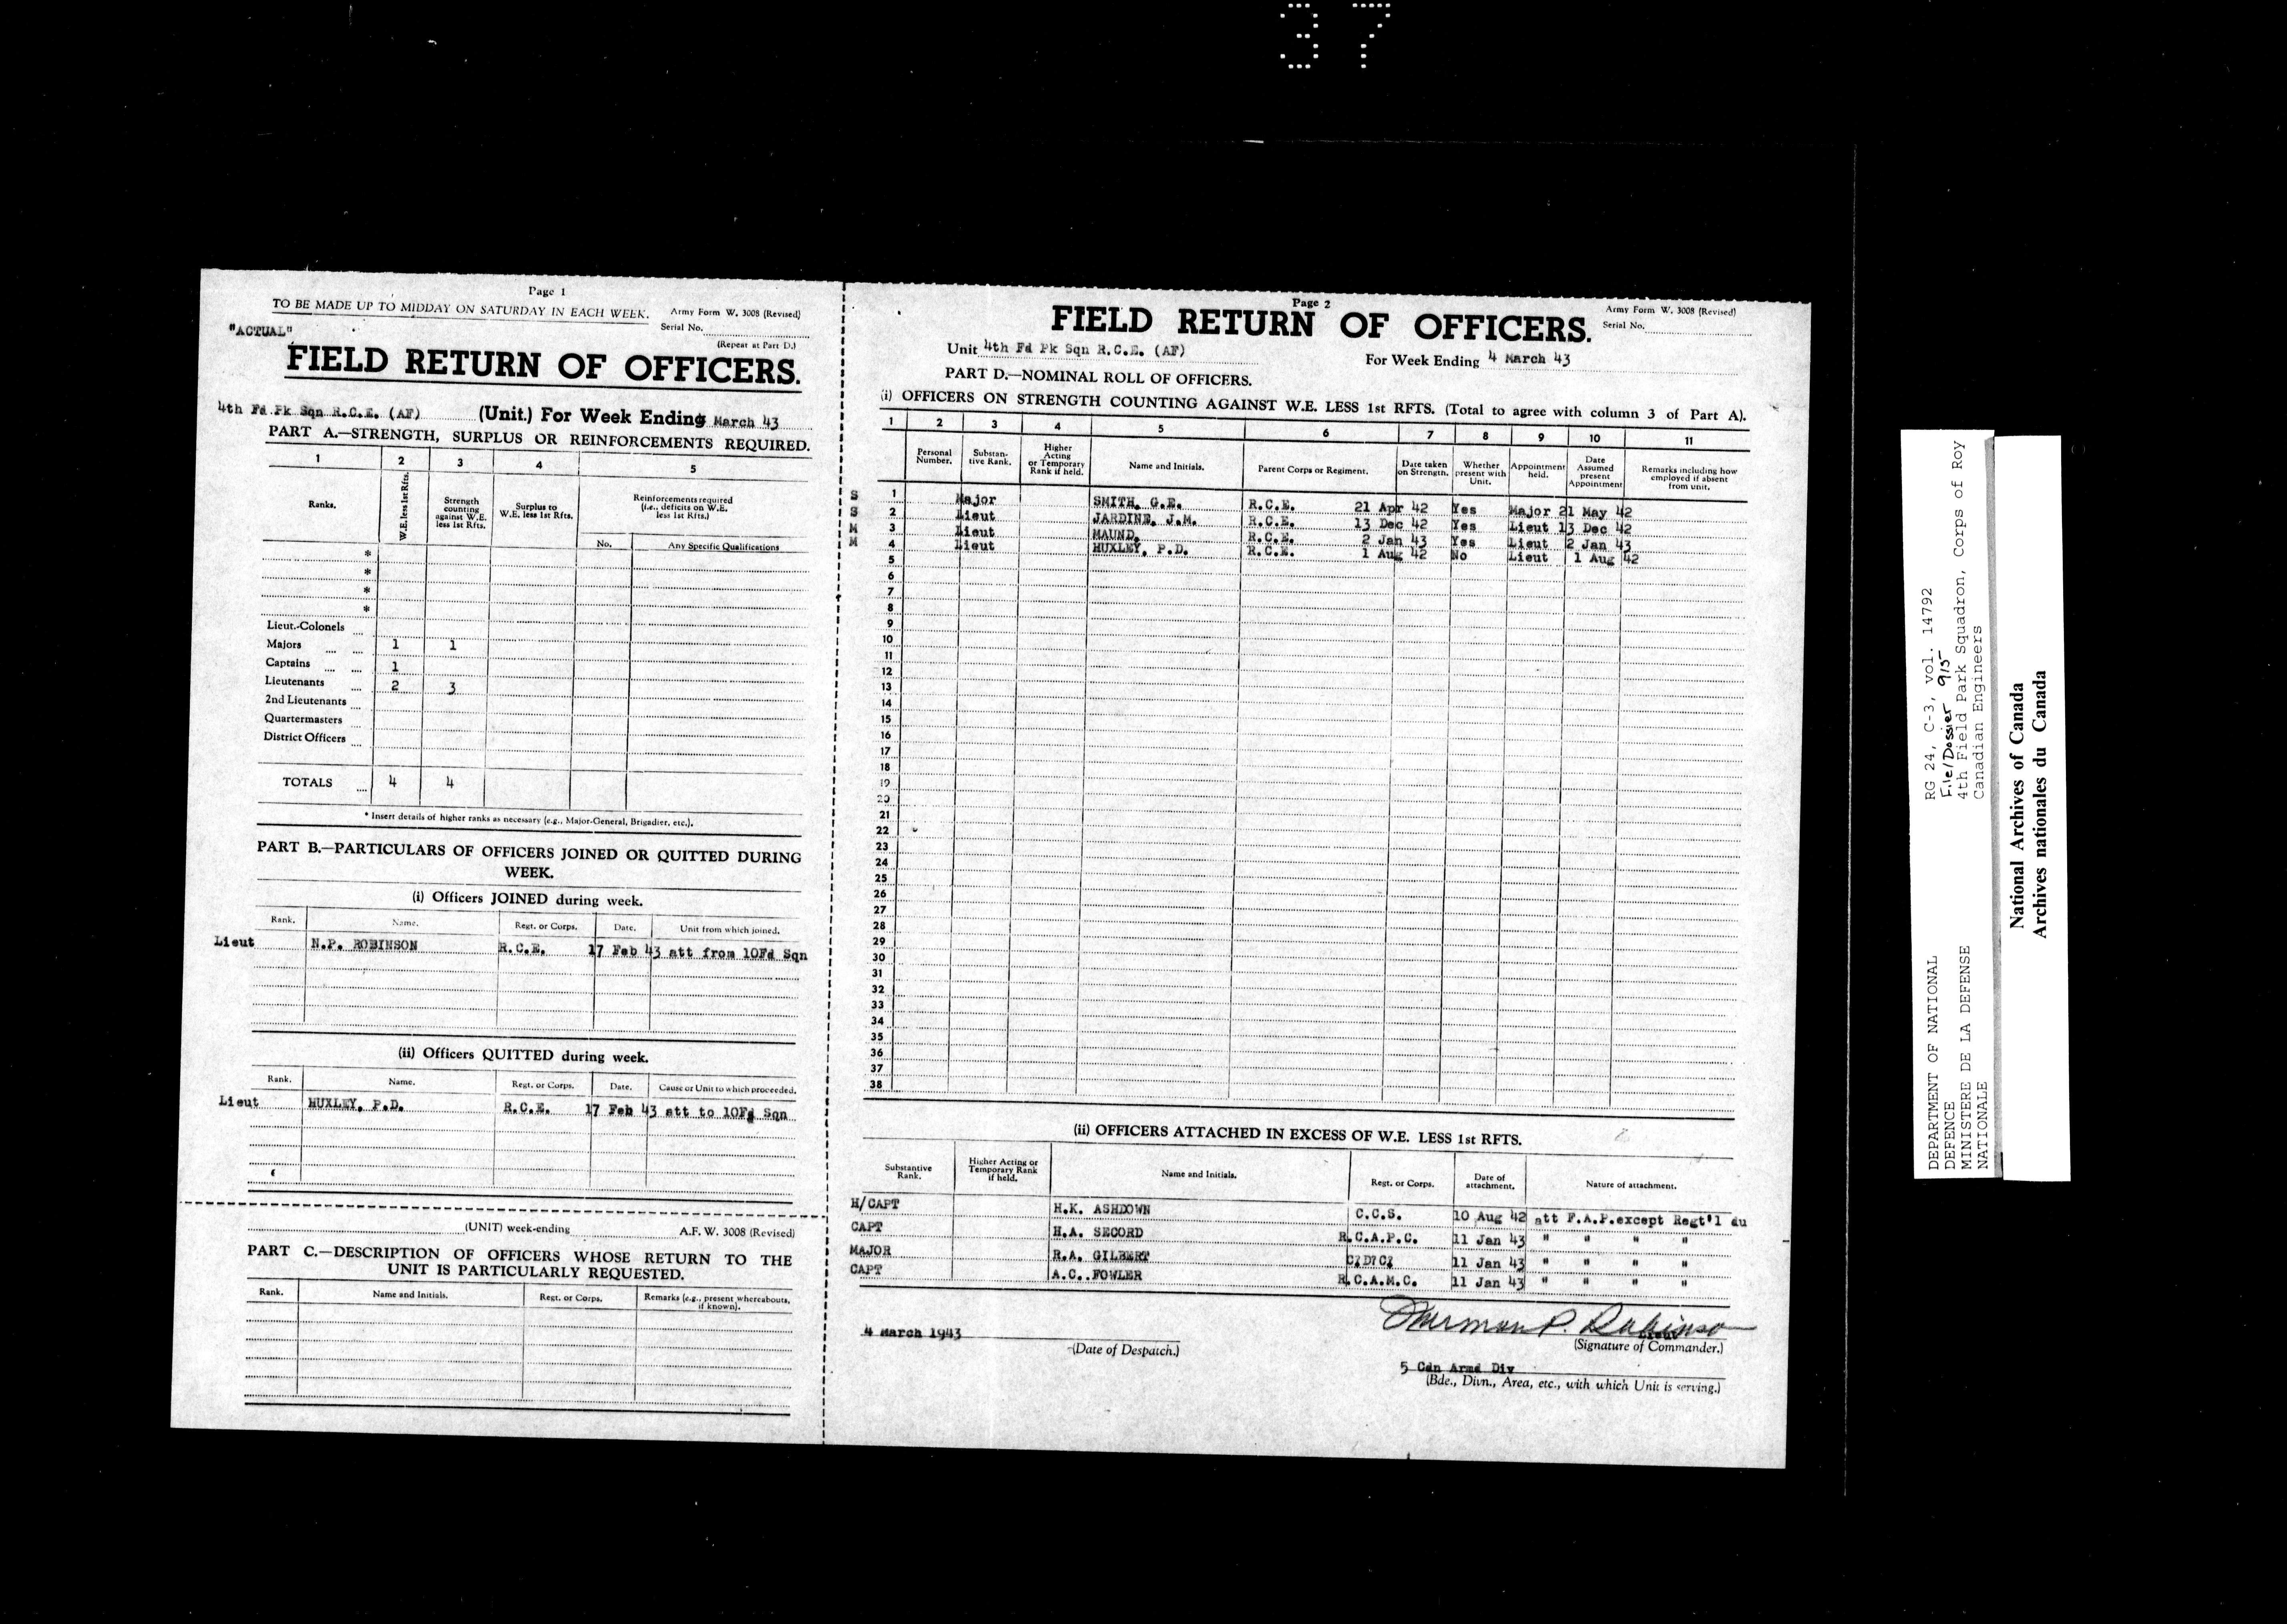 37
Page 1
TO BE MADE UP TO MIDDAY ON SATURDAY IN EACH WEEK. Army Form W. 3008 (Revised)
"ACTUAL" Serial No.
(Repeat at Part D.)
FIELD RETURN OF OFFICERS.
4th Fd Pk Sqn R.C.E. (AF) (Unit.) For Week Ending 4 March 43
PART A.—STRENGTH, SURPLUS OR REINFORCEMENTS REQUIRED.
1 2 3 4 5
Ranks. W.E. less 1st Rfts. Strength counting against W.E. less 1st Rfts. Surplus to W.E. less 1st Rfts. Reinforcements required (i.e., deficits on W.E. less 1st Rfts.)
No. Any Specific Qualifications
*
*
*
*
Lieut.-Colonels
Majors 1 1
Captains 1
Lieutenants 2 3
2nd Lieutenants
Quartermasters
District Officers
TOTALS 4 4
* Insert details of higher ranks as necessary (e.g., Major-General, Brigadier, etc.).
PART B.—PARTICULARS OF OFFICERS JOINED OR QUITTED DURING
WEEK.
(i) Officers JOINED during week.
Rank. Name. Regt. or Corps. Date. Unit from which joined.
Lieut N.P. ROBINSON R.C.E. 17 Feb 43 att from 10Fd Sqn
(ii) Officers QUITTED during week.
Rank. Name. Regt. or Corps. Date. Cause or Unit to which proceeded.
Lieut HUXLEY, P.D. R.C.E. 17 Feb 43 att to 10Fd Sqn
(UNIT) week-ending A.F.W. 3008 (Revised)
PART C.—DESCRIPTION OF OFFICERS WHOSE RETURN TO THE
UNIT IS PARTICULARLY REQUESTED.
Rank. Name and Initials. Regt. or Corps. Remarks (e.g., present whereabouts, if known).
Page 2
Army Form W. 3008 (Revised)
FIELD RETURN OF OFFICERS. Serial No.
Unit 4th Fd Pk Sqn R.C.E. (AF) For Week Ending 4 March 43
PART D.—NOMINAL ROLL OF OFFICERS.
(i) OFFICERS ON STRENGTH COUNTING AGAINST W.E. LESS 1st RFTS. (Total to agree with column 3 of Part A).
1 2 3 4 5 6 7 8 9 10 11
Personal Number. Substantive Rank. Higher Acting or Temporary Rank if held. Name and Initials. Parent Corps or Regiment. Date taken on Strength. Whether present with Unit. Appointment held. Date Assumed present Appointment Remarks including how employed if absent from unit.
S 1 Major SMITH, G.E. R.C.E. 21 Apr 42 Yes Major 21 May 42
S 2 Lieut JARDINE, J.M. R.C.E. 13 Dec 42 Yes Lieut 13 Dec 42
M 3 Lieut MAUND, R.C.E. 2 Jan 43 Yes Lieut 2 Jan 43
M 4 Lieut HUXLEY, P.D. R.C.E. 1 Aug 42 No Lieut 1 Aug 42
5
6
7
8
9
10
11
12
13
14
15
16
17
18
19
20
21
22
23
24
25
26
27
28
29
30
31
32
33
34
35
36
37
38
(ii) OFFICERS ATTACHED IN EXCESS OF W.E. LESS 1st RFTS.
Substantive Rank. Higher Acting or Temporary Rank if held. Name and Initials. Regt. or Corps. Date of attachment. Nature of attachment.
H/CAPT H.K. ASHDOWN C.C.S. 10 Aug 42 att F.A.P.except Regt'l du
CAPT H.A. SECORD R.C.A.P.C. 11 Jan 43 " " " "
MAJOR R.A. GILBERT C.D.C. 11 Jan 43 " " " "
CAPT A.C. FOWLER R.C.A.M.C. 11 Jan 43 " " " "
Norman P. Robinson
Lieut
4 March 1943 (Signature of Commander.)
(Date of Despatch.)
5 Cdn Armd Div
(Bde., Divn., Area, etc., with which Unit is serving.)
DEPARTMENT OF NATIONAL
DEFENCE
MINISTERE DE LA DEFENSE
NATIONALE
RG 24, C-3, vol. 14792
File/Dossier 915
4th Field Park Squadron, Corps of Roy
Canadian Engineers
National Archives of Canada
Archives nationales du Canada